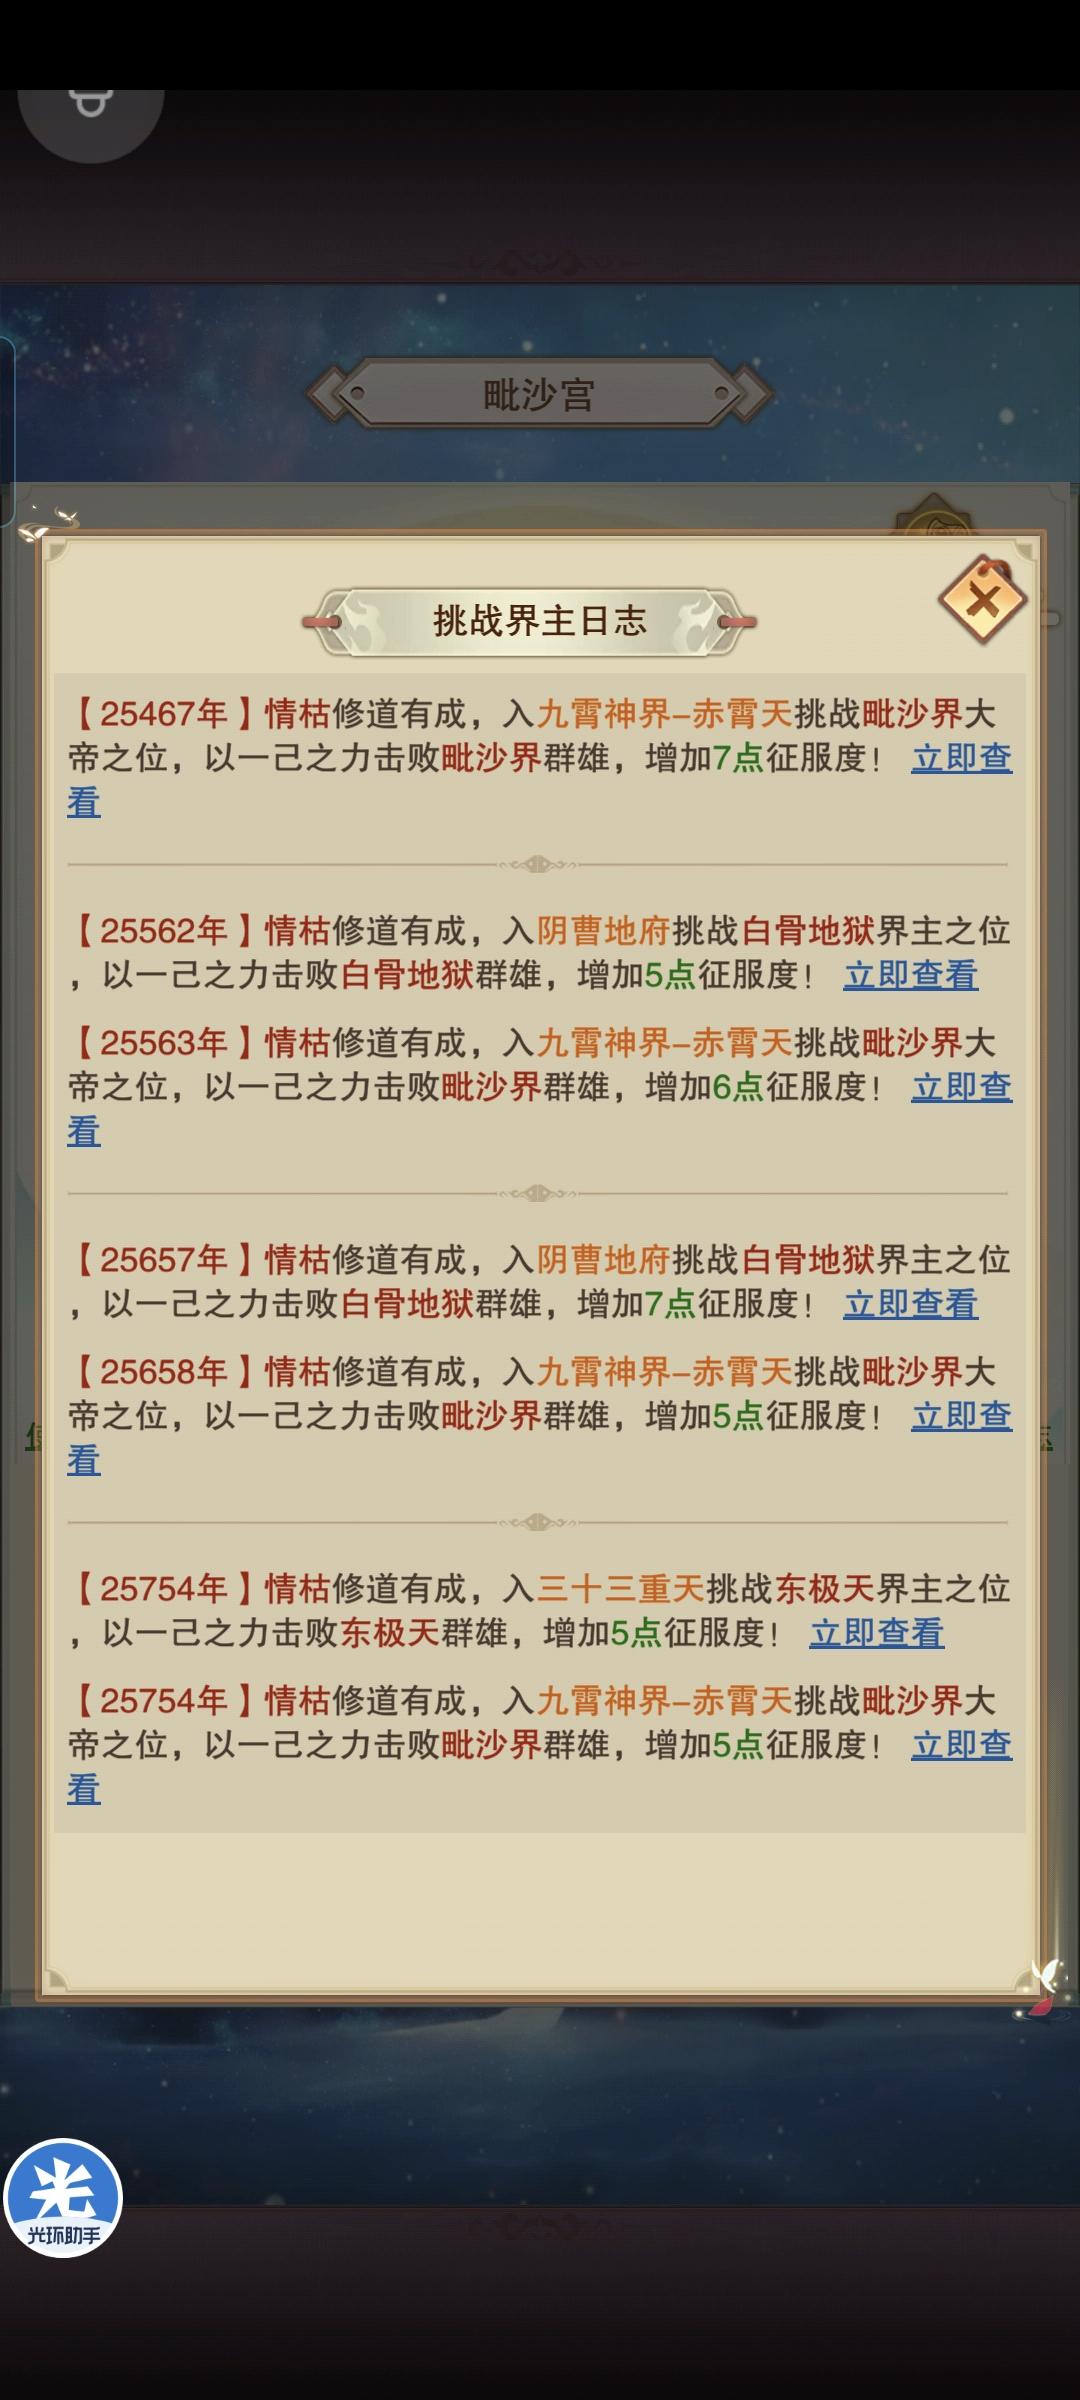 毗沙宫
挑战界主日志
【25467年】情枯修道有成，入九霄神界-赤霄天挑战毗沙界大
帝之位，以一己之力击败毗沙界群雄，增加7点征服度！ 立即查
看
【25562年】情枯修道有成，入阴曹地府挑战白骨地狱界主之位
，以一己之力击败白骨地狱群雄，增加5点征服度！ 立即查看
【25563年】情枯修道有成，入九霄神界-赤霄天挑战毗沙界大
帝之位，以一己之力击败毗沙界群雄，增加6点征服度！ 立即查
看
【25657年】情枯修道有成，入阴曹地府挑战白骨地狱界主之位
，以一己之力击败白骨地狱群雄，增加7点征服度！ 立即查看
【25658年】情枯修道有成，入九霄神界-赤霄天挑战毗沙界大
帝之位，以一己之力击败毗沙界群雄，增加5点征服度！ 立即查
看
【25754年】情枯修道有成，入三十三重天挑战东极天界主之位
，以一己之力击败东极天群雄，增加5点征服度！ 立即查看
【25754年】情枯修道有成，入九霄神界-赤霄天挑战毗沙界大
帝之位，以一己之力击败毗沙界群雄，增加5点征服度！ 立即查
看
光
光环助手